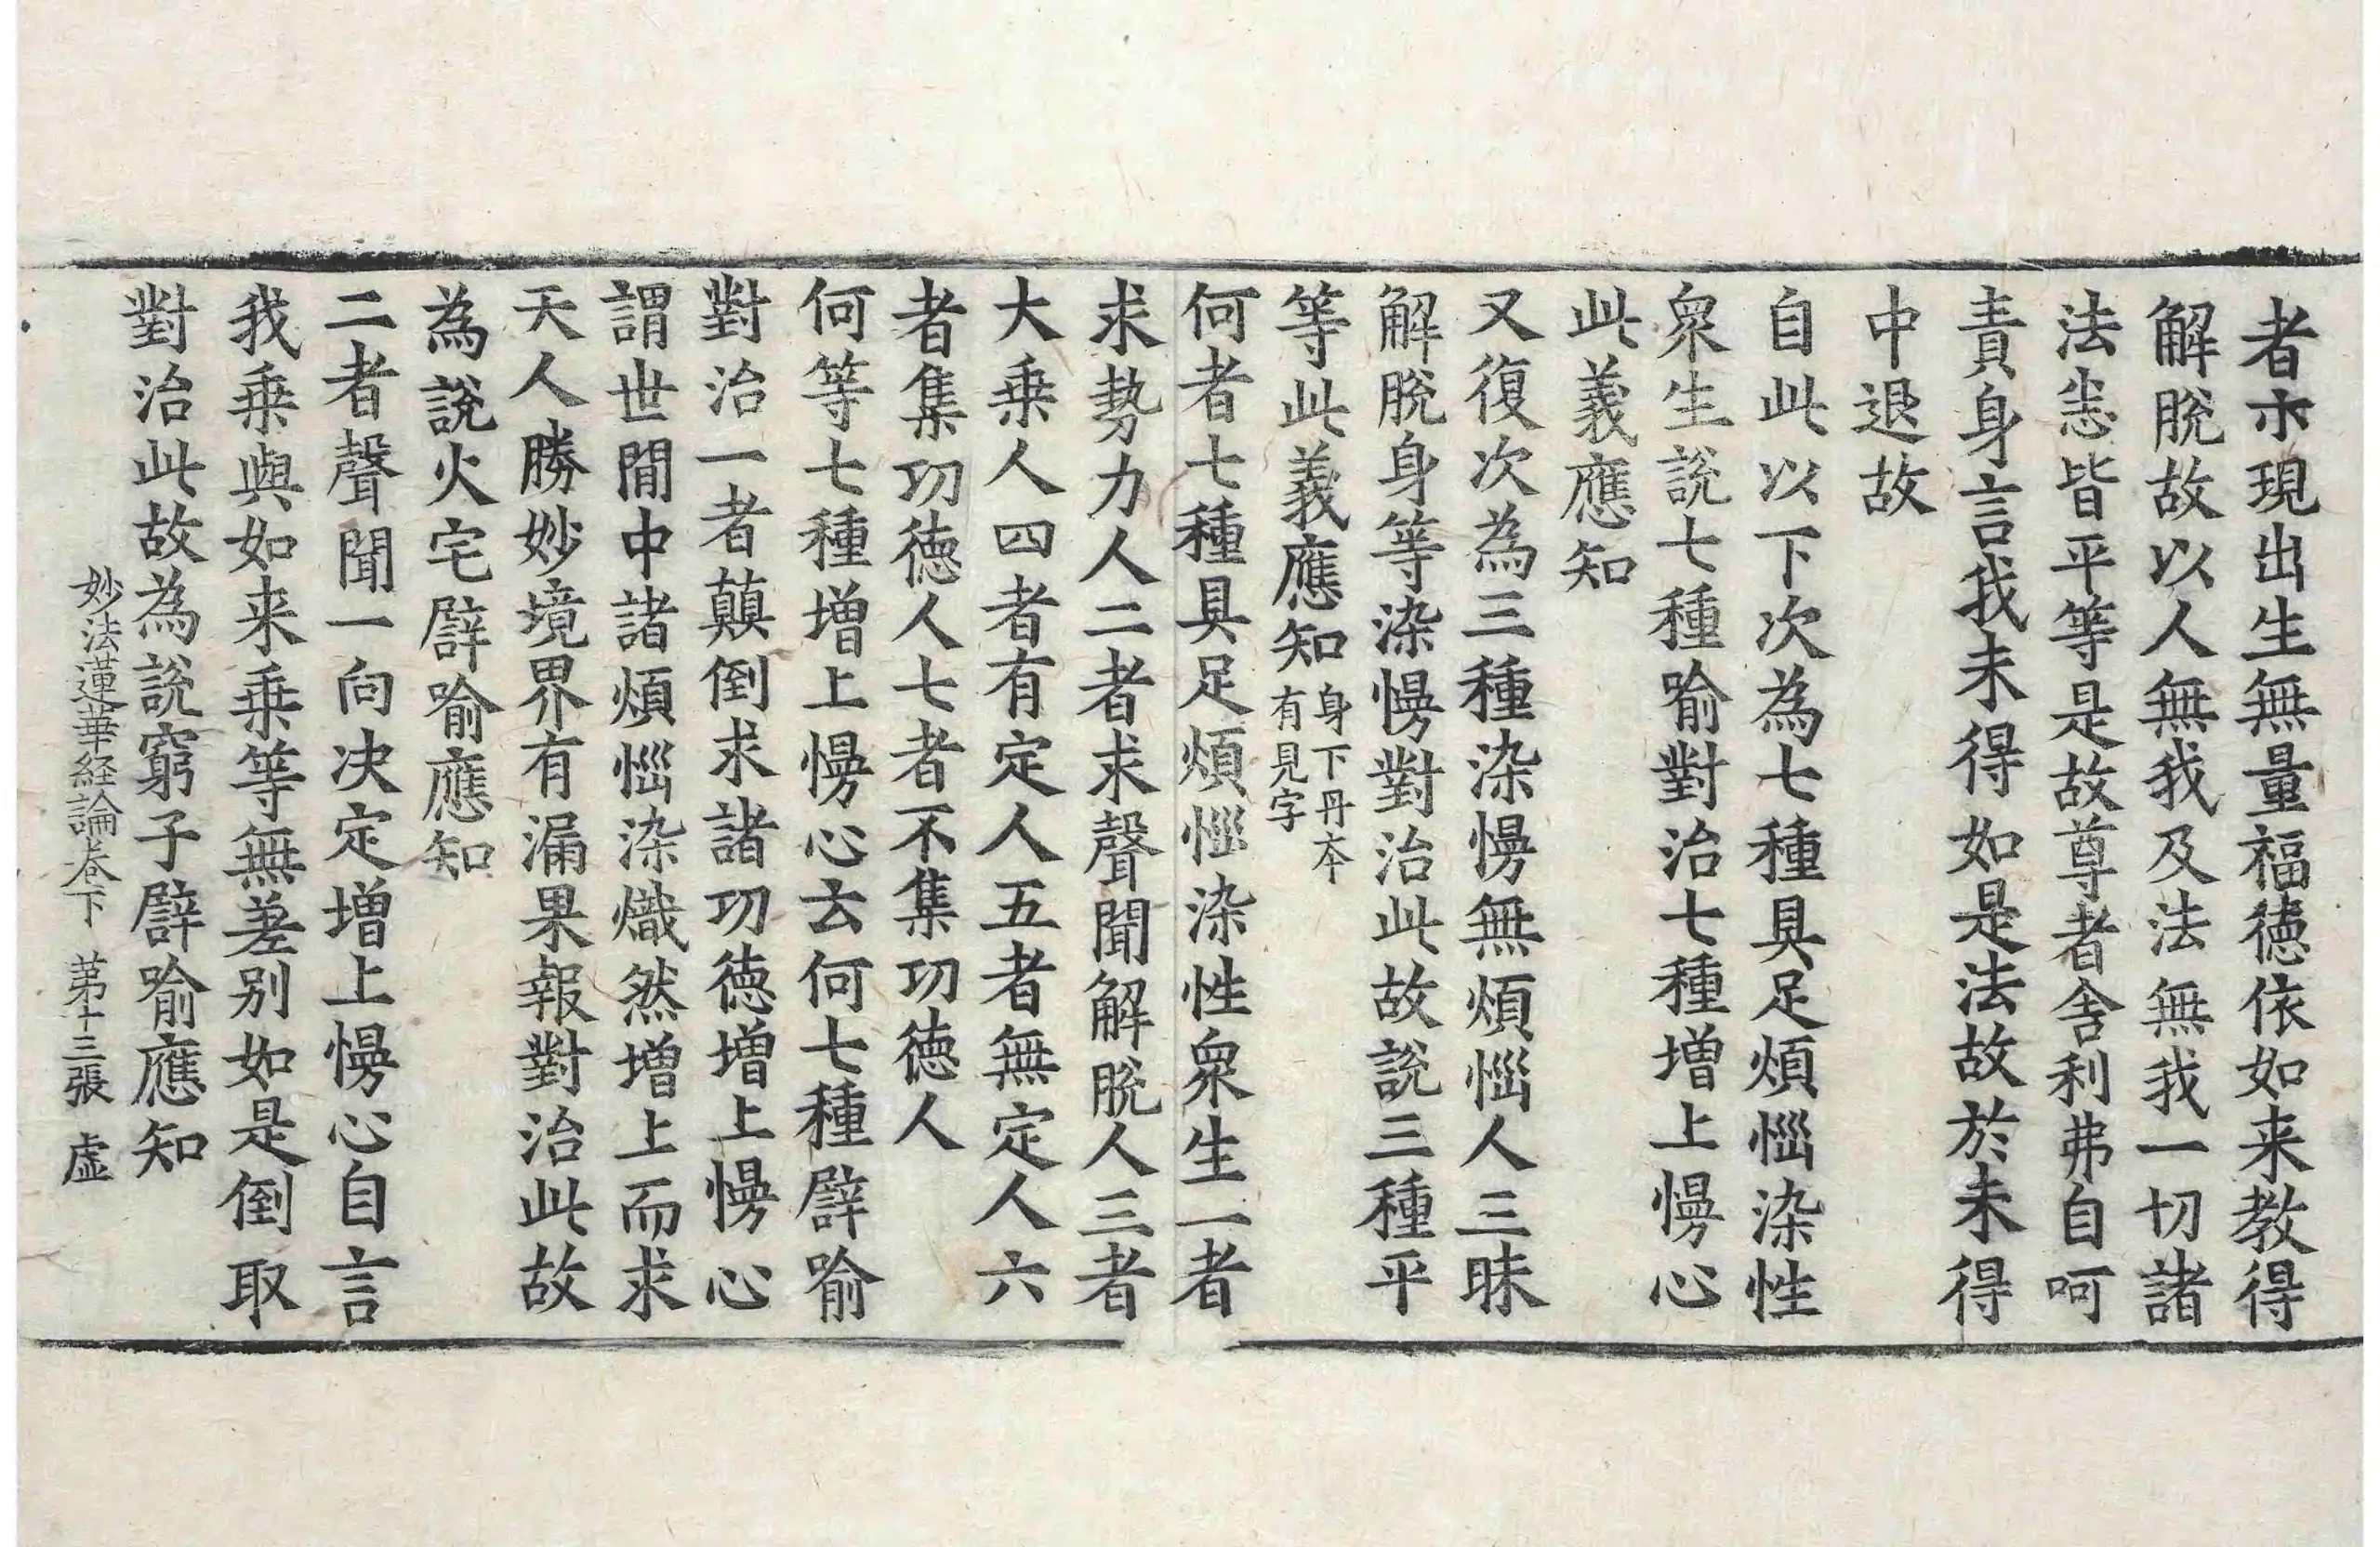 者示現出生無量福徳依如来教得
解脫故以人無我及法無我一切諸
法悉皆平等是故尊者舎利弗自呵
責身言我未得如是法故於未得
中退故
自此以下次為七種具足煩惱染性
衆生說七種喻對治七種增上慢心
此義應知
又復次為三種染慢無煩惱人三昧
解脫身等染慢對治此故說三種平
等此義應知身下丹本有見字
何者七種具足煩惱染性衆生一者
求勢力人二者求聲聞解脫人三者
大乗人四者有定人五者無定人六
者集功徳人七者不集功徳人
何等七種增上慢心云何七種譬喻
對治一者顛倒求諸功徳增上慢心
謂世間中諸煩惱染熾然增上而求
天人勝妙境界有漏果報對治此故
為說火宅譬喻應知
二者聲聞一向决定增上慢心自言
我乗與如来乗等無差别如是倒取
對治此故為說窮子譬喻應知
妙法蓮華経論卷下 第十三張 虚